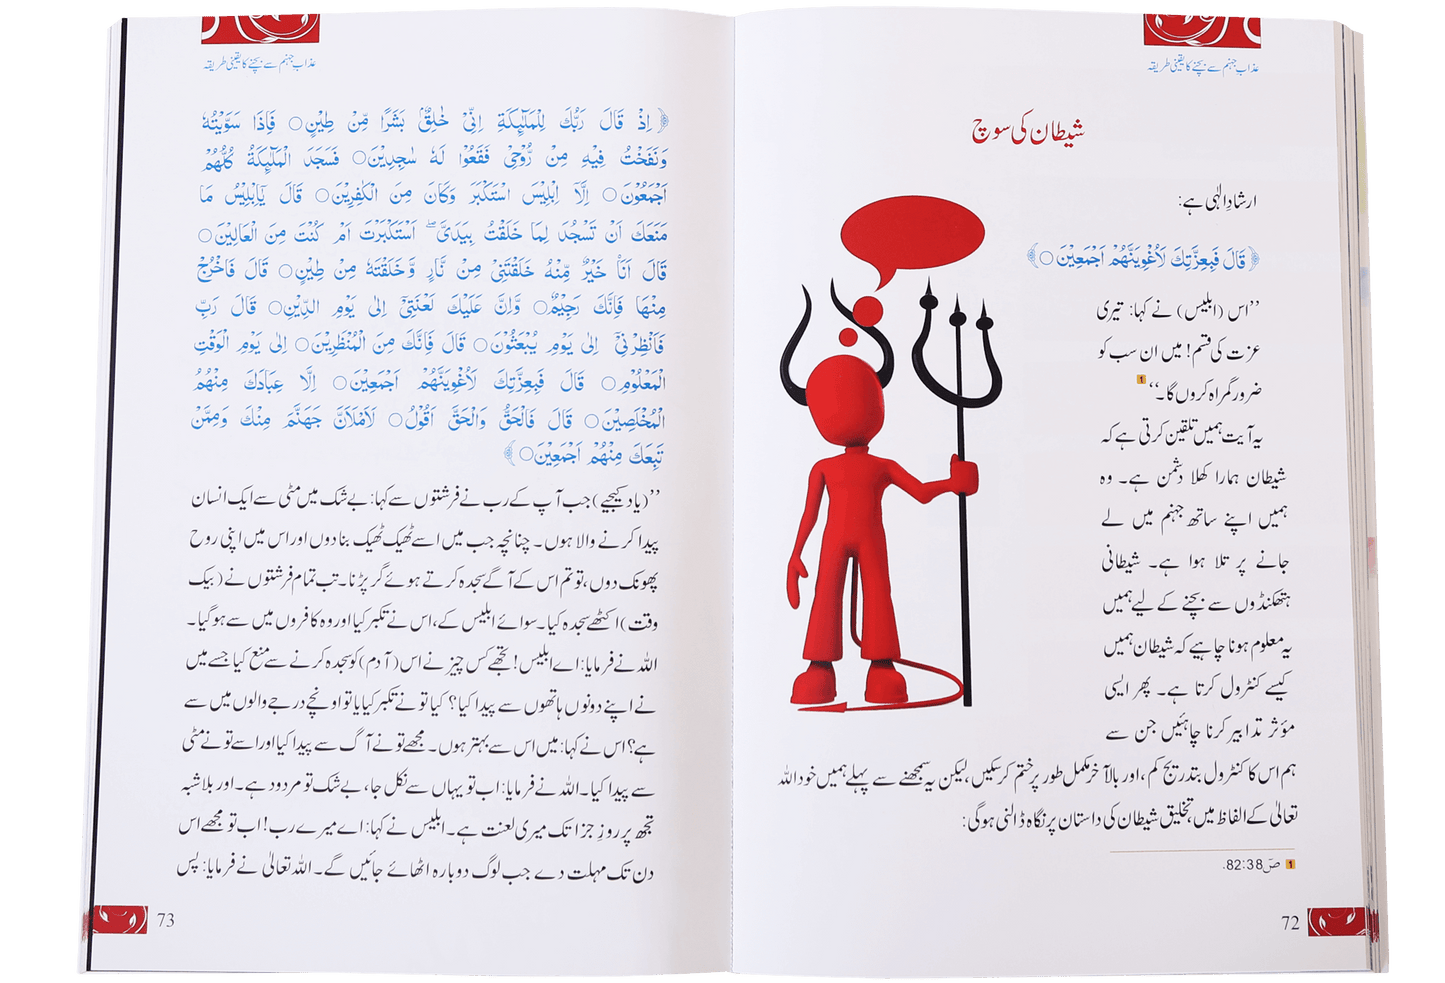 عذاب جہنم سے بچنے کا یقینی طریقہ
شیطان کی سوچ
ارشادِ الٰہی ہے:
﴿قَالَ فَبِعِزَّتِكَ لَاُغْوِيَنَّهُمْ اَجْمَعِيْنَ○﴾
’’اس (ابلیس) نے کہا: تیری
عزت کی قسم! میں ان سب کو
ضرور گمراہ کروں گا۔‘‘ 1
یہ آیت ہمیں تلقین کرتی ہے کہ
شیطان ہمارا کھلا دشمن ہے۔ وہ
ہمیں اپنے ساتھ جہنم میں لے
جانے پر تلا ہوا ہے۔ شیطانی
ہتھکنڈوں سے بچنے کے لیے ہمیں
یہ معلوم ہونا چاہیے کہ شیطان ہمیں
کیسے کنٹرول کرتا ہے۔ پھر ایسی
مؤثر تدابیر کرنا چاہئیں جن سے
ہم اس کا کنٹرول بتدریج کم، اور بالآخر مکمل طور پر ختم کر سکیں، لیکن یہ سمجھنے سے پہلے ہمیں خود اللہ
تعالیٰ کے الفاظ میں، تخلیق شیطان کی داستان پر نگاہ ڈالنی ہوگی:
1 صٓ 82:38.
72
عذاب جہنم سے بچنے کا یقینی طریقہ
﴿اِذْ قَالَ رَبُّكَ لِلْمَلٰٓئِكَةِ اِنِّيْ خٰلِقٌۢ بَشَرًا مِّنْ طِيْنٍ○ فَاِذَا سَوَّيْتُهٗ
وَنَفَخْتُ فِيْهِ مِنْ رُّوْحِيْ فَقَعُوْا لَهٗ سٰجِدِيْنَ○ فَسَجَدَ الْمَلٰٓئِكَةُ كُلُّهُمْ
اَجْمَعُوْنَ○ اِلَّآ اِبْلِيْسَ اسْتَكْبَرَ وَكَانَ مِنَ الْكٰفِرِيْنَ○ قَالَ يٰٓاِبْلِيْسُ مَا
مَنَعَكَ اَنْ تَسْجُدَ لِمَا خَلَقْتُ بِيَدَيَّ ۖ اَسْتَكْبَرْتَ اَمْ كُنْتَ مِنَ الْعَالِيْنَ○
قَالَ اَنَا۠ خَيْرٌ مِّنْهُ خَلَقْتَنِيْ مِنْ نَّارٍ وَّخَلَقْتَهٗ مِنْ طِيْنٍ○ قَالَ فَاخْرُجْ
مِنْهَا فَاِنَّكَ رَجِيْمٌ○ وَّاِنَّ عَلَيْكَ لَعْنَتِيْٓ اِلٰى يَوْمِ الدِّيْنِ○ قَالَ رَبِّ
فَاَنْظِرْنِيْٓ اِلٰى يَوْمِ يُبْعَثُوْنَ○ قَالَ فَاِنَّكَ مِنَ الْمُنْظَرِيْنَ○ اِلٰى يَوْمِ الْوَقْتِ
الْمَعْلُوْمِ○ قَالَ فَبِعِزَّتِكَ لَاُغْوِيَنَّهُمْ اَجْمَعِيْنَ○ اِلَّا عِبَادَكَ مِنْهُمُ
الْمُخْلَصِيْنَ○ قَالَ فَالْحَقُّ وَالْحَقَّ اَقُوْلُ○ لَاَمْلَاَنَّ جَهَنَّمَ مِنْكَ وَمِمَّنْ
تَبِعَكَ مِنْهُمْ اَجْمَعِيْنَ○﴾
’’(یاد کیجیے) جب آپ کے رب نے فرشتوں سے کہا: بے شک میں مٹی سے ایک انسان
پیدا کرنے والا ہوں۔ چنانچہ جب میں اسے ٹھیک ٹھیک بنا دوں اور اس میں اپنی روح
پھونک دوں، تو تم اس کے آگے سجدہ کرتے ہوئے گر پڑنا۔ تب تمام فرشتوں نے (بیک
وقت) اکٹھے سجدہ کیا۔ سوائے ابلیس کے، اس نے تکبر کیا اور وہ کافروں میں سے ہو گیا۔
اللہ نے فرمایا: اے ابلیس! تجھے کس چیز نے اس (آدم) کو سجدہ کرنے سے منع کیا جسے میں
نے اپنے دونوں ہاتھوں سے پیدا کیا؟ کیا تو نے تکبر کیا یا تو اونچے درجے والوں میں سے
ہے؟ اس نے کہا: میں اس سے بہتر ہوں۔ مجھے تو نے آگ سے پیدا کیا اور اسے تو نے مٹی
سے پیدا کیا۔ اللہ نے فرمایا: اب تو یہاں سے نکل جا، بے شک تو مردود ہے۔ اور بلاشبہ
تجھ پر روزِ جزا تک میری لعنت ہے۔ ابلیس نے کہا: اے میرے رب! اب تو مجھے اس
دن تک مہلت دے جب لوگ دوبارہ اٹھائے جائیں گے۔ اللہ تعالیٰ نے فرمایا: پس
73